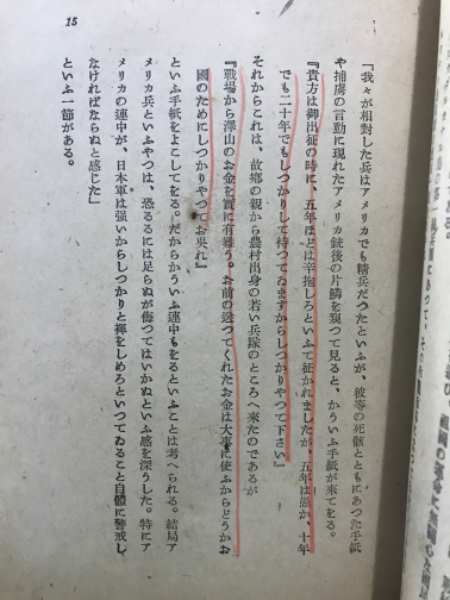 15
「我々が相對した兵はアメリカでも精兵だつたといふが、彼等の死骸とともにあつた手紙
や捕虜の言動に現れたアメリカ銃後の片鱗を窺つて見ると、かういふ手紙が來てをる。
『貴方は御出征の時に、五年ほどは辛抱しろといふて征かれましたが、五年は愚か、十年
でも二十年でもしつかりして待つてゐますからしつかりやつて下さい』
それからこれは、故鄕の親から農村出身の若い兵隊のところへ來たのであるが
『戰場から澤山のお金を實に有難う。お前の送つてくれたお金は大事に使ふからどうかお
國のためにしつかりやつてお吳れ』
といふ手紙をよこしてをる。だからかういふ連中もをるといふことは考へられる。結局ア
メリカ兵といふやつは、恐るるには足らぬが侮つてはいかぬといふ感を深うした。特にア
メリカの連中が、日本軍は强いからしつかりと褌をしめろといつてゐること自體に警戒し
なければならぬと感じた」
といふ一節がある。